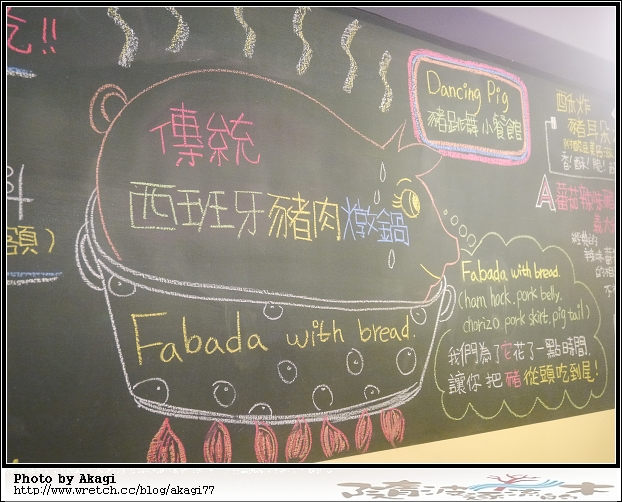 吃!!
傳統
西班牙豬肉燉鍋
Fabada with bread.
Dancing Pig
豬跳舞小餐館
Fabada with bread.
(ham hock, pork belly,
chorizo pork skirt, pig tail)
我們為了它花了一點時間,
讓你把豬從頭吃到尾!
額)
酥炸
豬耳朵
A
Photo by Akagi
http://www.wretch.cc/blog/akagi77